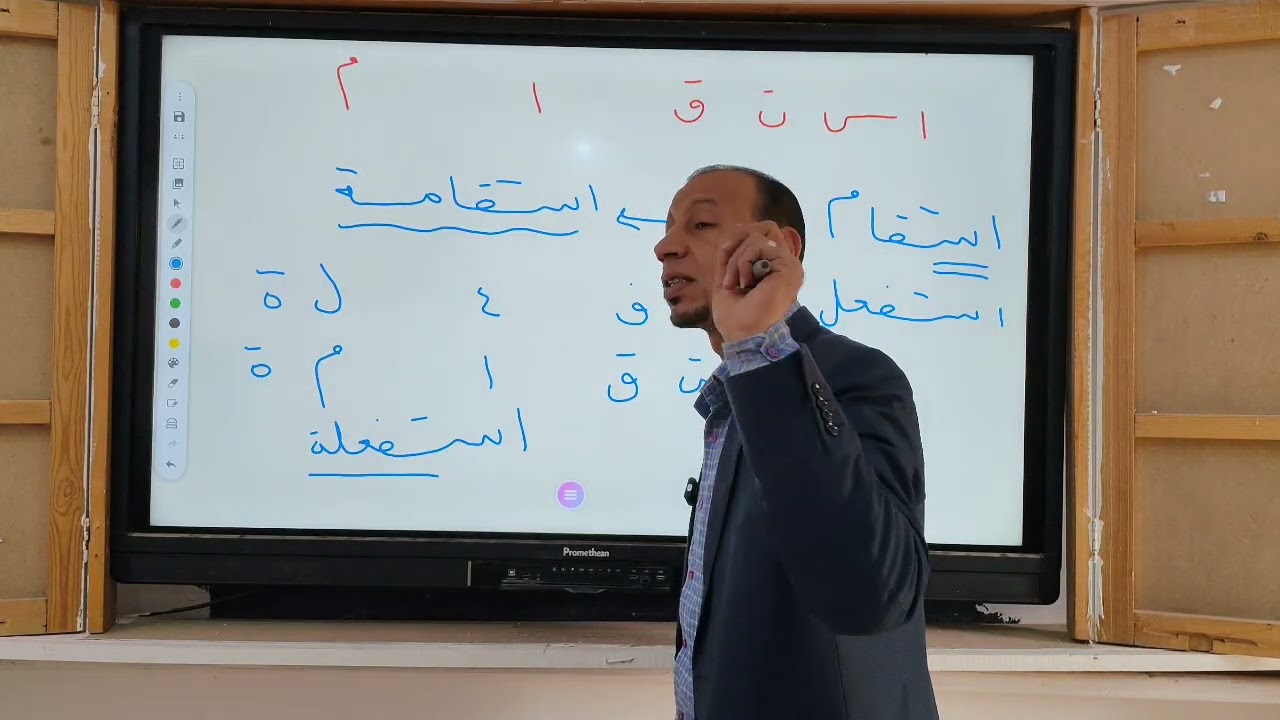 ا س ت ق ا م
استقام ← استقامة
استفعل ف ع ل ة
ت ق ا م ة
استفعلة
Promethean